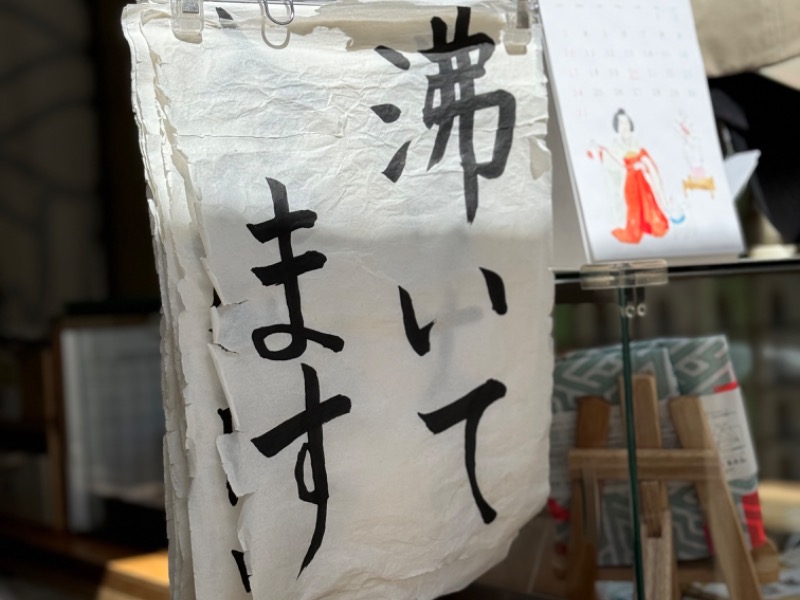 沸いて
ます